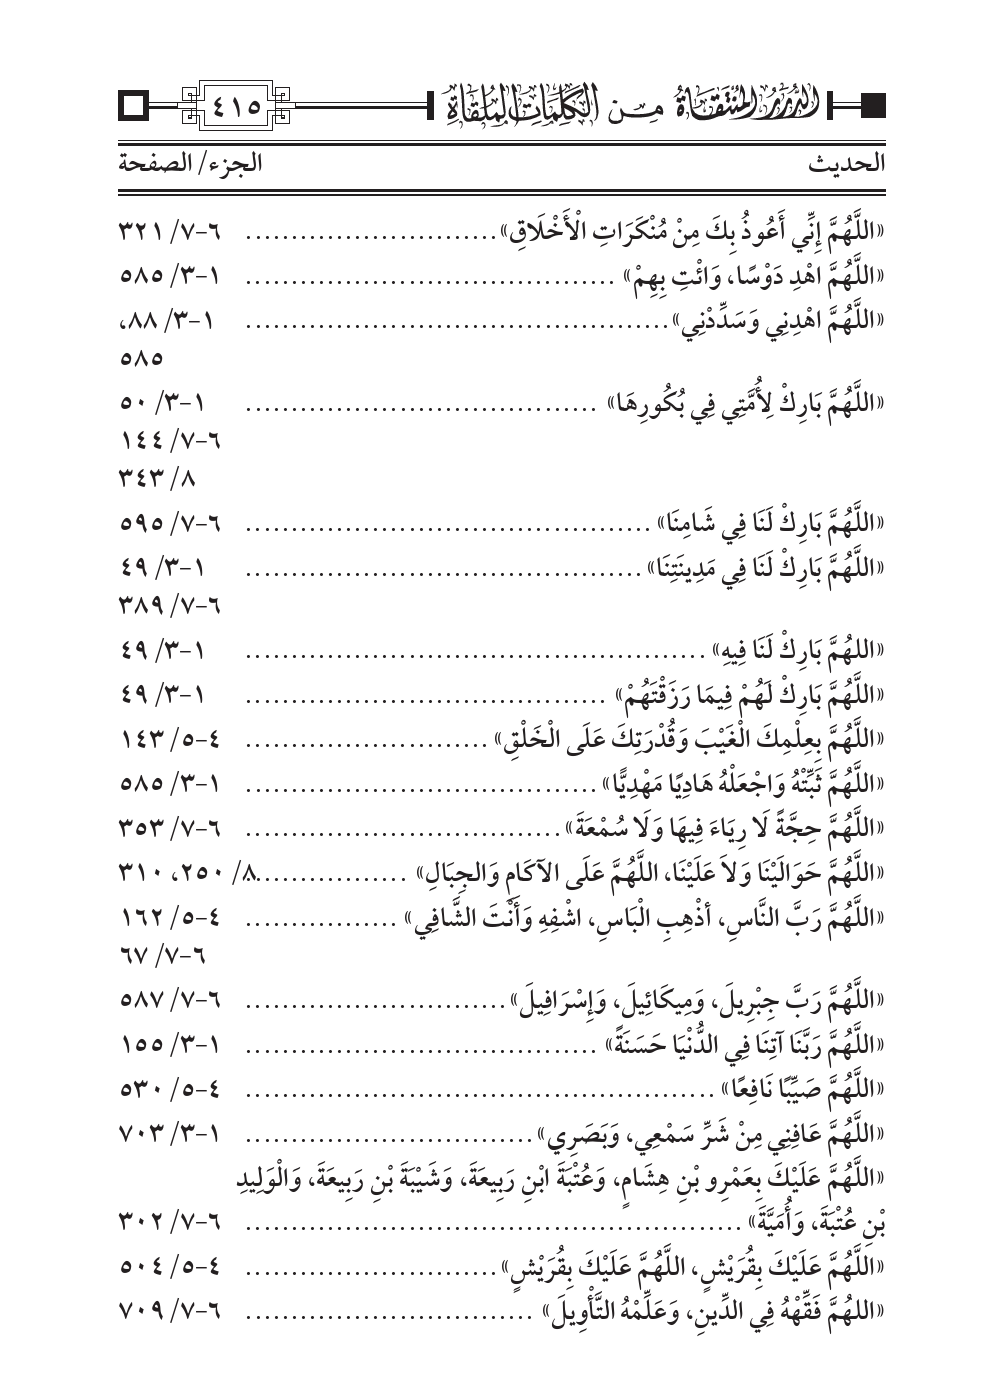 الدُّرَرُ المُنْتَقَاةُ مِن الكَلِمَاتِ المُلْقَاةِ ٤١٥
الحديث الجزء/ الصفحة
«اللَّهُمَّ إِنِّي أَعُوذُ بِكَ مِنْ مُنْكَرَاتِ الْأَخْلَاقِ» ............................ ٦-٧/ ٣٢١
«اللَّهُمَّ اهْدِ دَوْسًا، وَائْتِ بِهِمْ» ........................................ ١-٣/ ٥٨٥
«اللَّهُمَّ اهْدِنِي وَسَدِّدْنِي» .............................................. ١-٣/ ٨٨،
٥٨٥
«اللَّهُمَّ بَارِكْ لِأُمَّتِي فِي بُكُورِهَا» ....................................... ١-٣/ ٥٠
٦-٧/ ١٤٤
٨/ ٣٤٣
«اللَّهُمَّ بَارِكْ لَنَا فِي شَامِنَا» ............................................ ٦-٧/ ٥٩٥
«اللَّهُمَّ بَارِكْ لَنَا فِي مَدِينَتِنَا» ........................................... ١-٣/ ٤٩
٦-٧/ ٣٨٩
«اللهُمَّ بَارِكْ لَنَا فِيهِ» .................................................. ١-٣/ ٤٩
«اللَّهُمَّ بَارِكْ لَهُمْ فِيمَا رَزَقْتَهُمْ» ....................................... ١-٣/ ٤٩
«اللَّهُمَّ بِعِلْمِكَ الْغَيْبَ وَقُدْرَتِكَ عَلَى الْخَلْقِ» ........................... ٤-٥/ ١٤٣
«اللَّهُمَّ ثَبِّتْهُ وَاجْعَلْهُ هَادِيًا مَهْدِيًّا» ....................................... ١-٣/ ٥٨٥
«اللَّهُمَّ حِجَّةً لَا رِيَاءَ فِيهَا وَلَا سُمْعَةَ» ................................... ٦-٧/ ٣٥٣
«اللَّهُمَّ حَوَالَيْنَا وَلاَ عَلَيْنَا، اللَّهُمَّ عَلَى الآكَامِ وَالجِبَالِ» .................. ٨/ ٢٥٠، ٣١٠
«اللَّهُمَّ رَبَّ النَّاسِ، أذْهِبِ الْبَاسِ، اشْفِهِ وَأَنْتَ الشَّافِي» ................. ٤-٥/ ١٦٢
٦-٧/ ٦٧
«اللَّهُمَّ رَبَّ جِبْرِيلَ، وَمِيكَائِيلَ، وَإِسْرَافِيلَ» ............................. ٦-٧/ ٥٨٧
«اللَّهُمَّ رَبَّنَا آتِنَا فِي الدُّنْيَا حَسَنَةً» ....................................... ١-٣/ ١٥٥
«اللَّهُمَّ صَيِّبًا نَافِعًا» ................................................... ٤-٥/ ٥٣٠
«اللَّهُمَّ عَافِنِي مِنْ شَرِّ سَمْعِي، وَبَصَرِي» ................................ ١-٣/ ٧٠٣
«اللَّهُمَّ عَلَيْكَ بِعَمْرِو بْنِ هِشَامٍ، وَعُتْبَةَ ابْنِ رَبِيعَةَ، وَشَيْبَةَ بْنِ رَبِيعَةَ، وَالْوَلِيدِ
بْنِ عُتْبَةَ، وَأُمَيَّةَ» ...................................................... ٦-٧/ ٣٠٢
«اللَّهُمَّ عَلَيْكَ بِقُرَيْشٍ، اللَّهُمَّ عَلَيْكَ بِقُرَيْشٍ» ............................ ٤-٥/ ٥٠٤
«اللهُمَّ فَقِّهْهُ فِي الدِّينِ، وَعَلِّمْهُ التَّأْوِيلَ» ................................ ٦-٧/ ٧٠٩